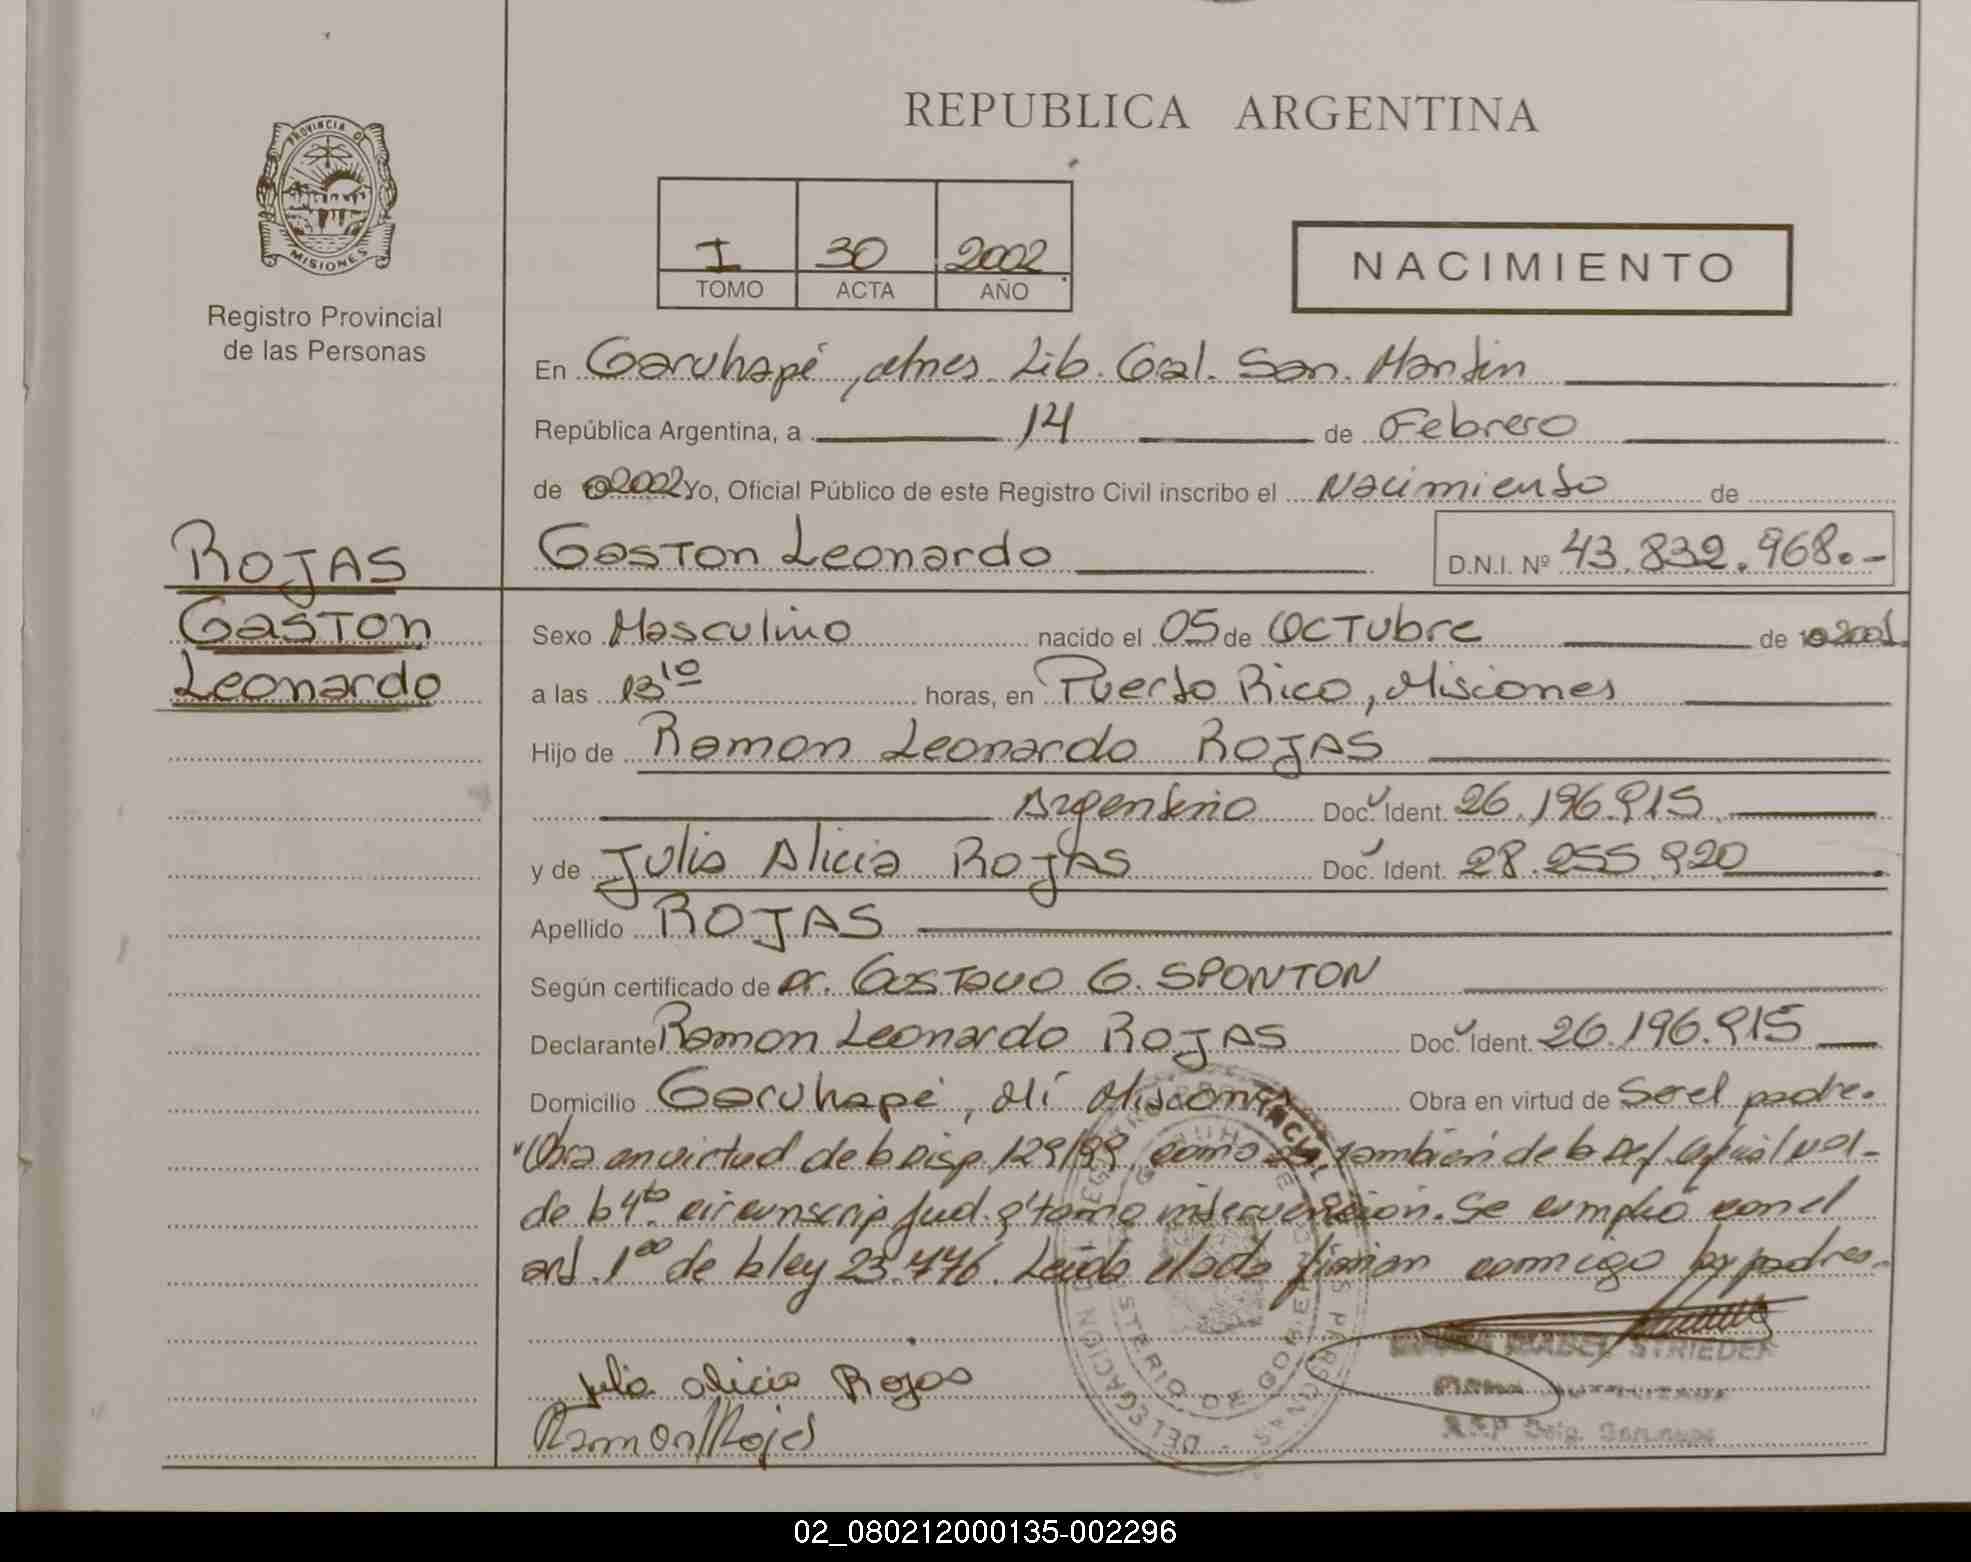 PROVINCIA DE
MISIONES
Registro Provincial
de las Personas
ROJAS
GASTON
Leonardo
REPUBLICA ARGENTINA
I 30 2002
TOMO ACTA AÑO
NACIMIENTO
En Garuhapé, dtnes. Lib. Gral. San. Martin
República Argentina, a 14 de Febrero
de 2002 Yo, Oficial Público de este Registro Civil inscribo el Nacimiento de
GASTON Leonardo D.N.I. Nº 43.832.968.-
Sexo Masculino nacido el 05 de OCTubre de 2001.
a las 13 10 horas, en Puerto Rico, Misiones
Hijo de Ramon Leonardo ROJAS
Argentino Doc. Ident. 26.196.915
y de Julia Alicia ROJAS Doc. Ident. 28.255.920
Apellido ROJAS
Según certificado de Dr. GUSTAVO G. SPONTON
Declarante Ramon Leonardo ROJAS Doc. Ident. 26.196.915
Domicilio Garuhapé, Mí Misiones Obra en virtud de Ser el padre.
"Obra en virtud de la Disp. 129/99, como también de la Def. Oficial
de la 4ta. circunscrip Jud. q' tomo intervención. Se cumplió con el
art. 1ro de la ley 23.776. Leída el acta firman conmigo los padres.
Julia alicia Rojas
Ramon Rojas
ISABEL STRIEDER
FIRMA AUTORIZADA
R.P.P Delg. Garuhapé
DELEGACION
MINISTERIO DE GOBIERNO
02_080212000135-002296